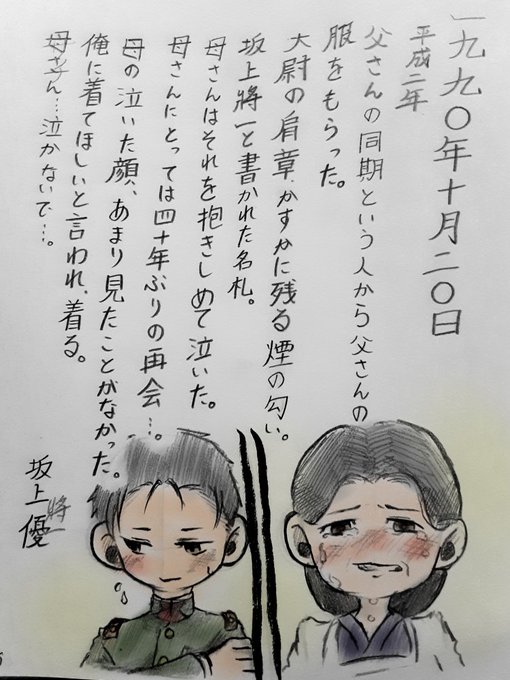 一九九〇年十月二〇日
平成二年
父さんの同期という人から父さんの
服をもらった。
大尉の肩章、かすかに残る煙の匂い。
坂上將一と書かれた名札。
母さんはそれを抱きしめて泣いた。
母さんにとっては四十年ぶりの再会…。
母の泣いた顔、あまり見たことがなかった。
俺に着てほしいと言われ、着る。
母さん…泣かないで…。
坂上優
將一